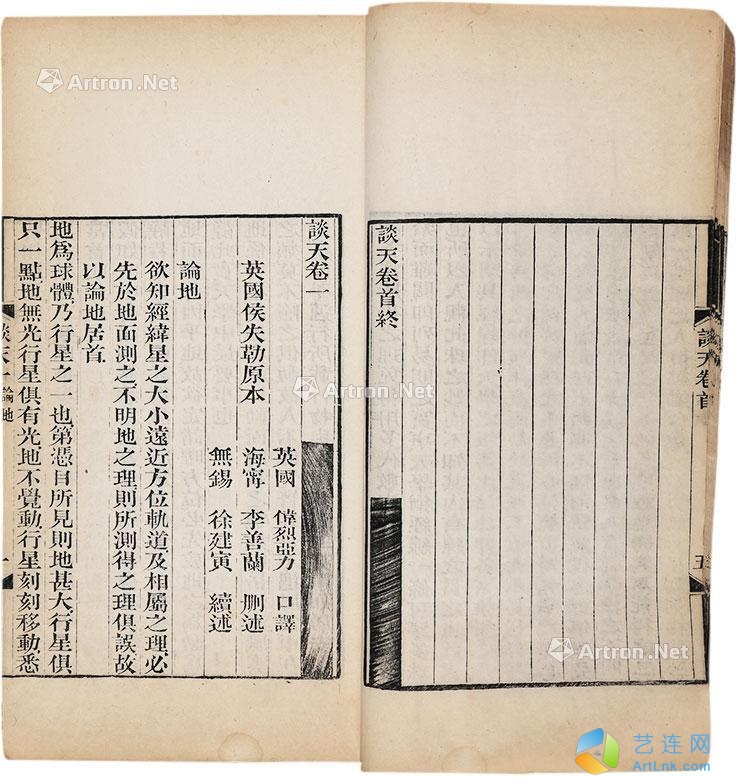 談天卷首終
談天卷首
五
談天卷一
英國 偉烈亞力 口譯
英國侯失勒原本 海寧 李善蘭 刪述
無錫 徐建寅 續述
論地
欲知經緯星之大小遠近方位軌道及相屬之理必
先於地面測之不明地之理則所測得之理俱誤故
以論地居首
地爲球體乃行星之一也第憑目所見則地甚大行星俱
只一點地無光行星俱有光地不覺動行星刻刻移動悉
談天一 論地
一
Artron.Net
Artron.Net
Artron.Net
艺连网
ArtLnk.com